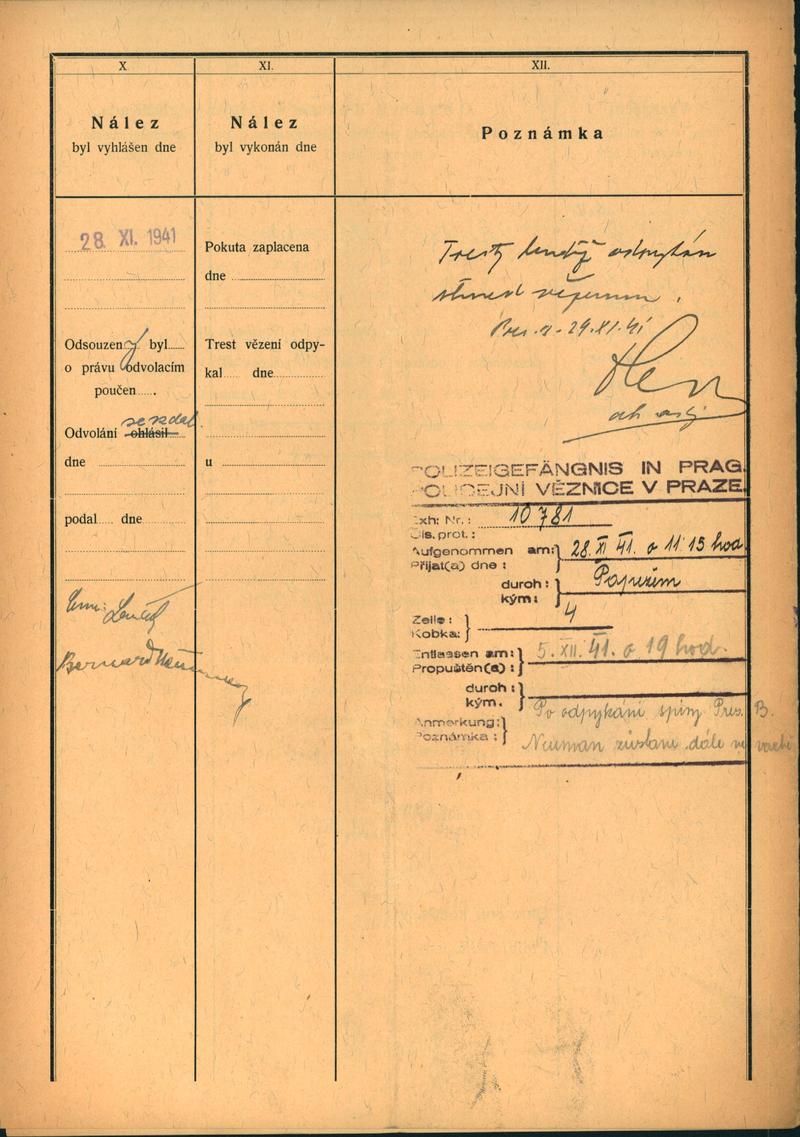 X
Nález
byl vyhlášen dne
28. XI. 1941
Odsouzený byl
o právu odvolacím
poučen
se vzdal
Odvolání ohlásil
dne
podal dne
Bernard
XI.
Nález
byl vykonán dne
Pokuta zaplacena
dne
Trest vězení odpy-
kal dne
u
XII.
Poznámka
29.XI.41
POLIZEIGEFÄNGNIS IN PRAG.
POLICEJNÍ VĚZNICE V PRAZE.
Exh: Nr.: 10781
Čís. prot.:
Aufgenommen am: 28. XI 41. o 11 15 hod
Přijat(a) dne:
durch:
kým:
Zelle: 4
Kobka:
Entlassen am: 5. XII. 41. o 19 hod.
Propuštěn(a):
durch:
kým.
Anmerkung: Po odpykání B.
Poznámka: Neuman zůstane dále ve vazbě